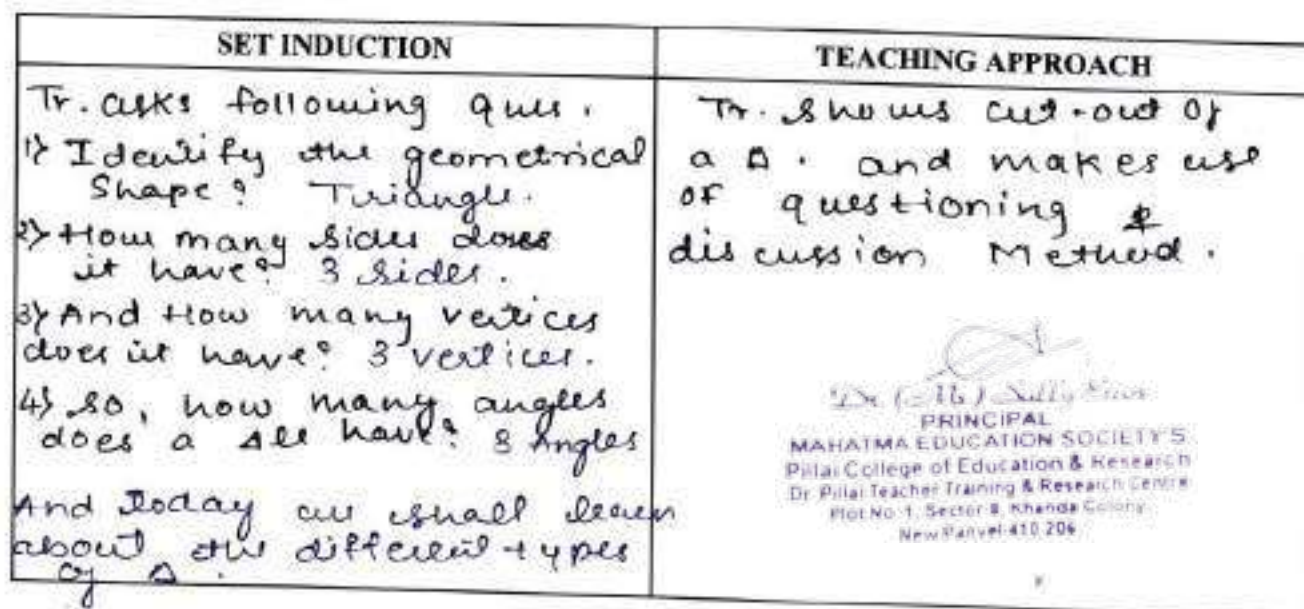 SET INDUCTION
Tr. asks following ques.
1) Identify the geometrical
Shape? Triangle.
2) How many sides does
it have? 3 sides.
3) And How many vertices
does it have? 3 vertices.
4) so, how many angles
does a Δle have? 3 Angles
And Today we shall learn
about the different types
of Δ.
TEACHING APPROACH
Tr. shows cut-out of
a Δ. and makes use
of questioning &
discussion Method.
Dr. (Ms.) Sally
PRINCIPAL
MAHATMA EDUCATION SOCIETY'S
Pillai College of Education & Research
Dr. Pillai Teacher Training & Research Centre
Plot No. 1, Sector 8, Khanda Colony
New Panvel-410 206